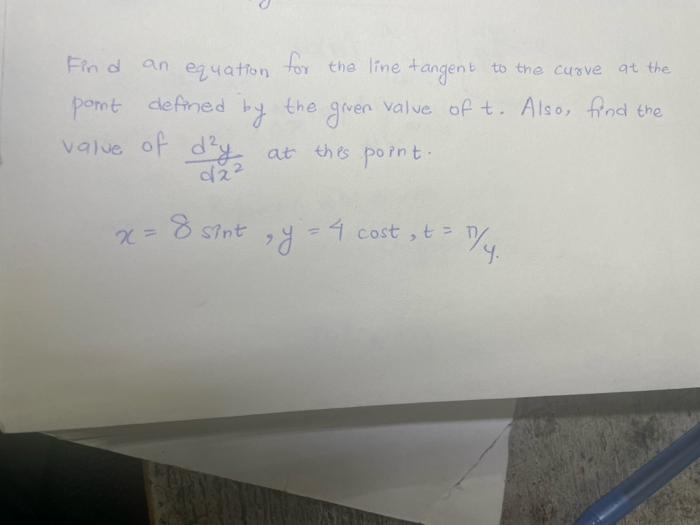 Find an equation for the line tangent to the curve at the
point defined by the given value of t. Also, find the
value of d²y/dx² at this point.
x = 8 sint , y = 4 cost , t = π/4.